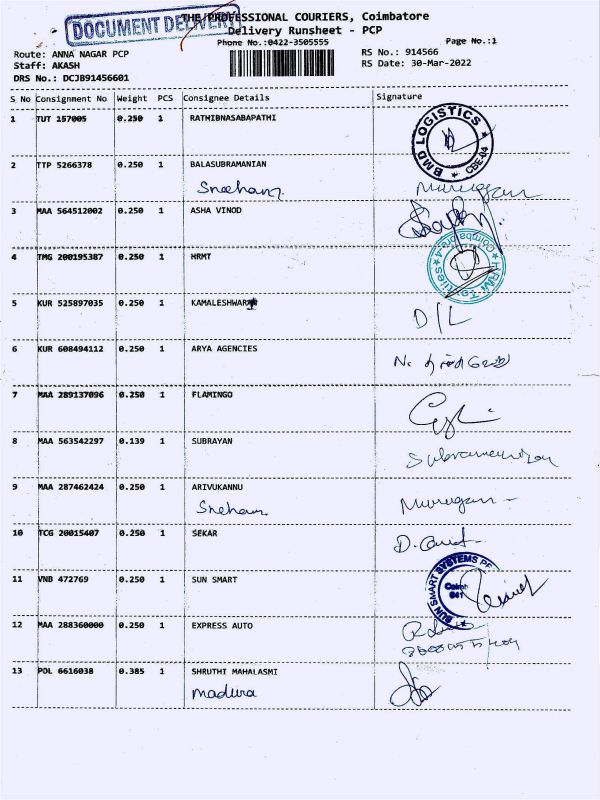 DOCUMENT DELIVERY
THE PROFESSIONAL COURIERS, Coimbatore
Delivery Runsheet - PCP
Phone No.:0422-3505555
Page No.:1
Route: ANNA NAGAR PCP
RS No.: 914566
Staff: AKASH
RS Date: 30-Mar-2022
DRS No.: DCJB91456601
S No Consignment No Weight PCS Consignee Details Signature
1 TUT 157005 0.250 1 RATHIBNASABAPATHI
BMD LOGISTICS CBE-04
2 TTP 5266378 0.250 1 BALASUBRAMANIAN
Sneeham. Murugan
3 MAA 564512002 0.250 1 ASHA VINOD
4 TMG 200195387 0.250 1 HRMT
Coimbatore-4
5 KUR 525897035 0.250 1 KAMALESHWARI
D/L
6 KUR 608494112 0.250 1 ARYA AGENCIES
7 MAA 289137096 0.250 1 FLAMINGO
8 MAA 563542297 0.139 1 SUBRAYAN
Subramaniyan
9 MAA 287462424 0.250 1 ARIVUKANNU
Sneham. Murugan
10 TCG 20015407 0.250 1 SEKAR
11 VNB 472769 0.250 1 SUN SMART
SUN SMART SYSTEMS
12 MAA 288360000 0.250 1 EXPRESS AUTO
13 POL 6616038 0.385 1 SHRUTHI MAHALASMI
madura